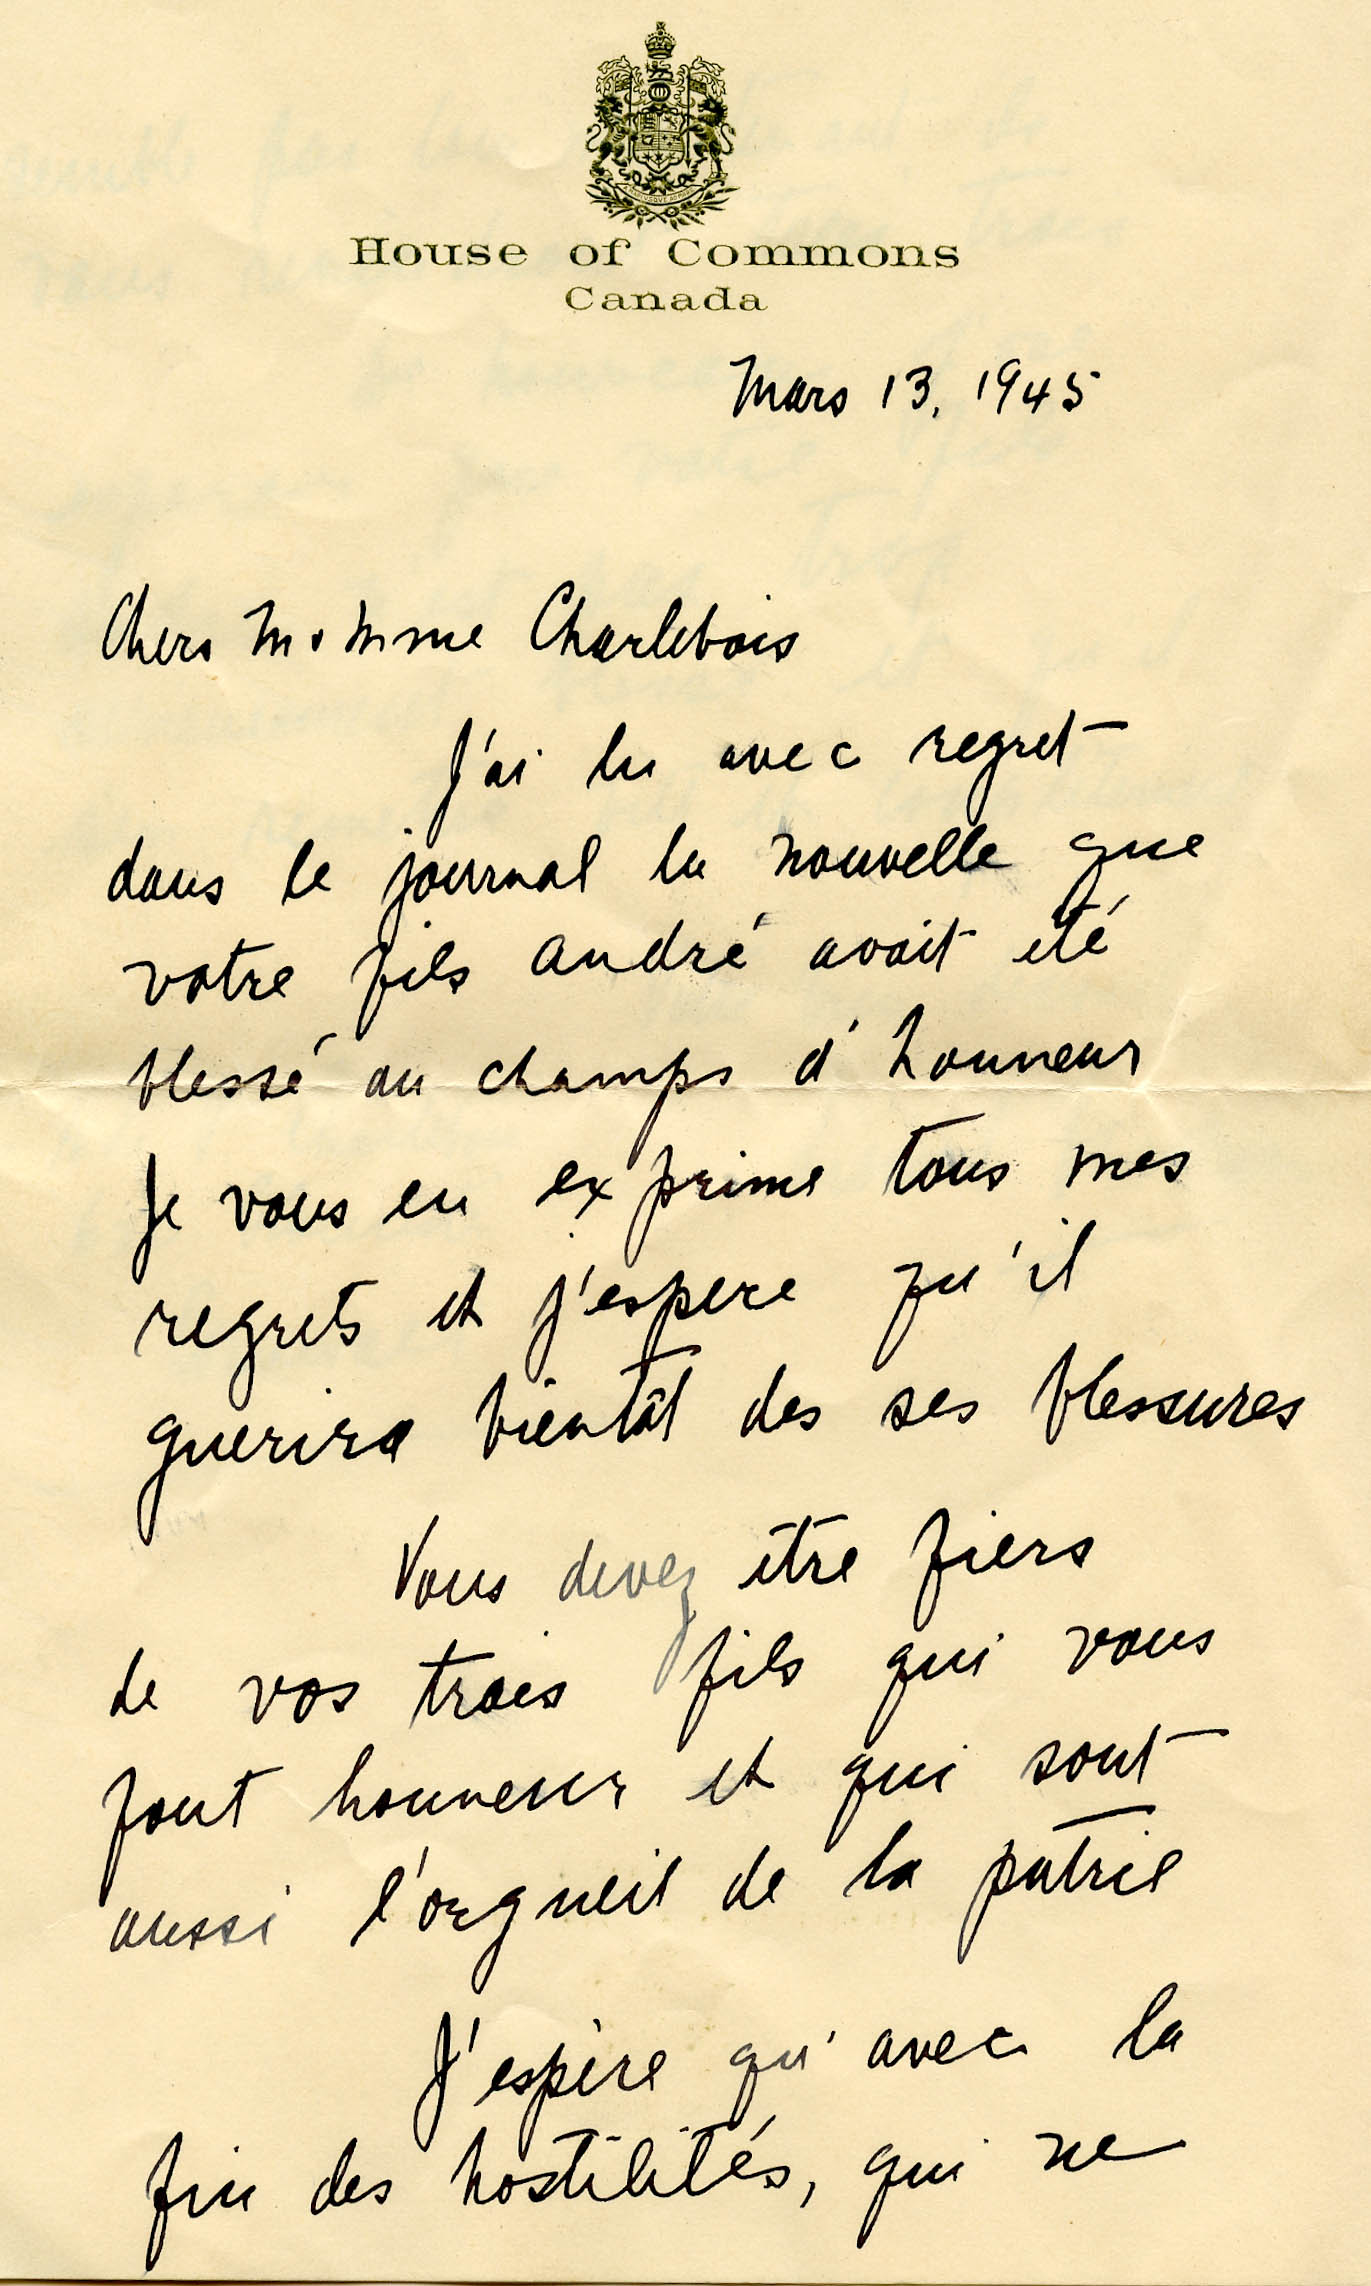 House of Commons
Canada
Mars 13, 1945
Chers M & Mme Charlebois
J'ai lu avec regret
dans le journal la nouvelle que
votre fils André avait été
blessé au champs d'honneur
Je vous en exprime tous mes
regrets et j'espere qu'il
guerira bientôt des ses blessures
Vous devez être fiers
de vos trois fils qui vous
font honneur et qui sont
aussi l'orgueil de la patrie
J'espère qu'avec la
fin des hostilités, qui ne